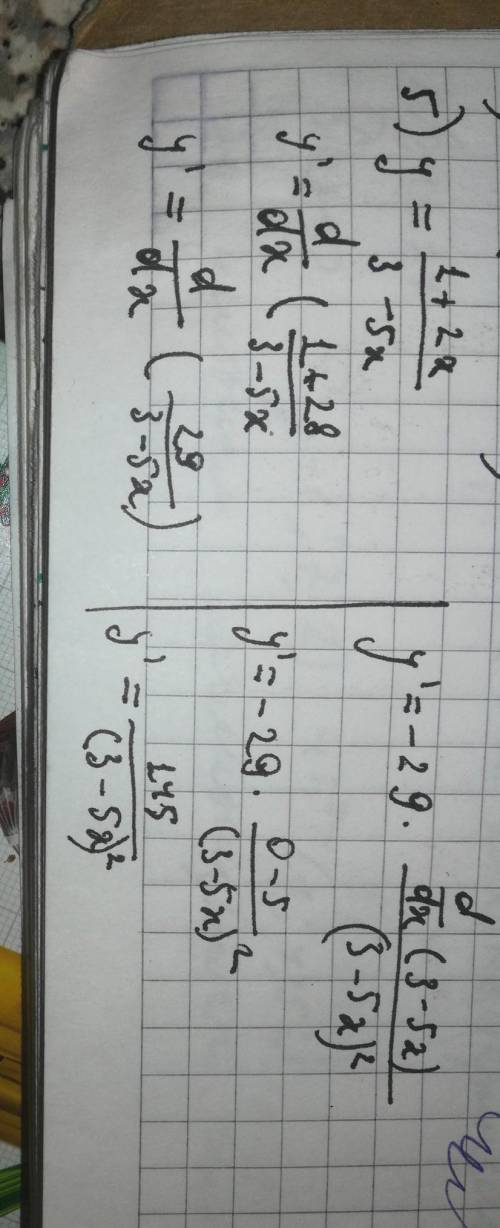 5) y = (1+2x)/(3-5x)
y' = d/dx ( (1+28)/(3-5x)
y' = d/dx ( 29/(3-5x) )
y' = -29 · (d/dx (3-5x))/(3-5x)²
y' = -29 · (0-5)/(3-5x)²
y' = 145/(3-5x)²